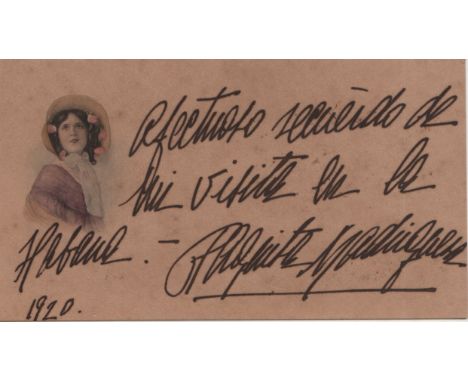 Afectuoso recuerdo de
mi visita en la
Habana. –
Paquita Madriguera
1920.